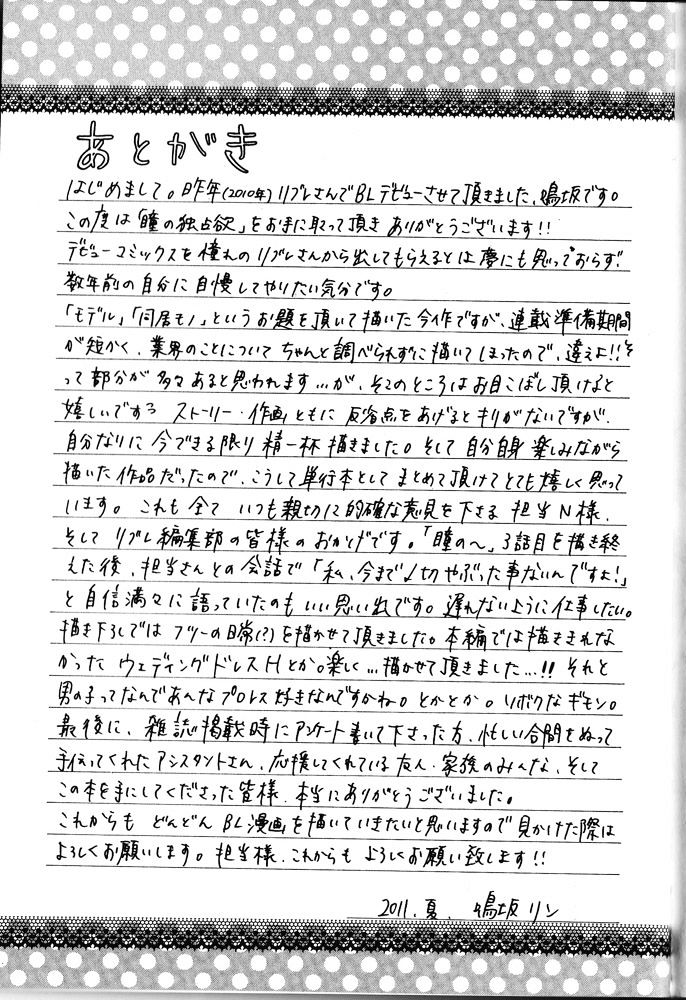 あとがき
はじめまして。昨年(2010年)リブレさんでBLデビューさせて頂きました、嶋坂です。
この度は「瞳の独占欲」をお手に取って頂き ありがとうございます!!
デビューコミックスを憧れのリブレさんから出してもらえるとは夢にも思っておらず!
数年前の自分に自慢してやりたい気分です。
「モデル」「同居モノ」というお題を頂いて描いた今作ですが、連載準備期間
が短かく、業界のことについて ちゃんと調べられずに描いてしまったので、違えよ!!そ
って部分が多々あると思われます…が、そこのところはお目こぼし頂けると
嬉しいです ストーリー・作画ともに 反省点をあげるとキリがないですが、
自分なりに 今できる限り 精一杯 描きました。そして 自分自身 楽しみながら
描いた作品だったので、こうして単行本として まとめて頂けてとても嬉しく思って
います。これも全て いつも親切に的確な意見を下さる 担当N様、
そして リブレ編集部の皆様の おかげです。「瞳の〜」3話目を描き終
えた後、担当さんとの会話で「私、今まで〆切やぶった事ないんですよ!」
と 自信満々に 語っていたのも いい思い出です。遅れないように仕事したい。
描き下ろしでは フツーの日常(?)を描かせて頂きました。本編では描ききれな
かった ウェディングドレスHとか。楽しく…描かせて頂きました…!! それと
男の子ってなんであんなプロレス好きなんですかね。とかとか。ソボクなギモン。
最後に、雑誌掲載時にアンケート書いて下さった方、忙しい合間をぬって
手伝ってくれたアシスタントさん、応援してくれている友人・家族のみんな、そして
この本を手にしてくださった皆様、本当にありがとうございました。
これからも どんどん BL漫画を描いていきたいと思いますので 見かけた際は
よろしくお願いします。担当様、これからも よろしくお願い致します!!
2011.夏. 嶋坂リン